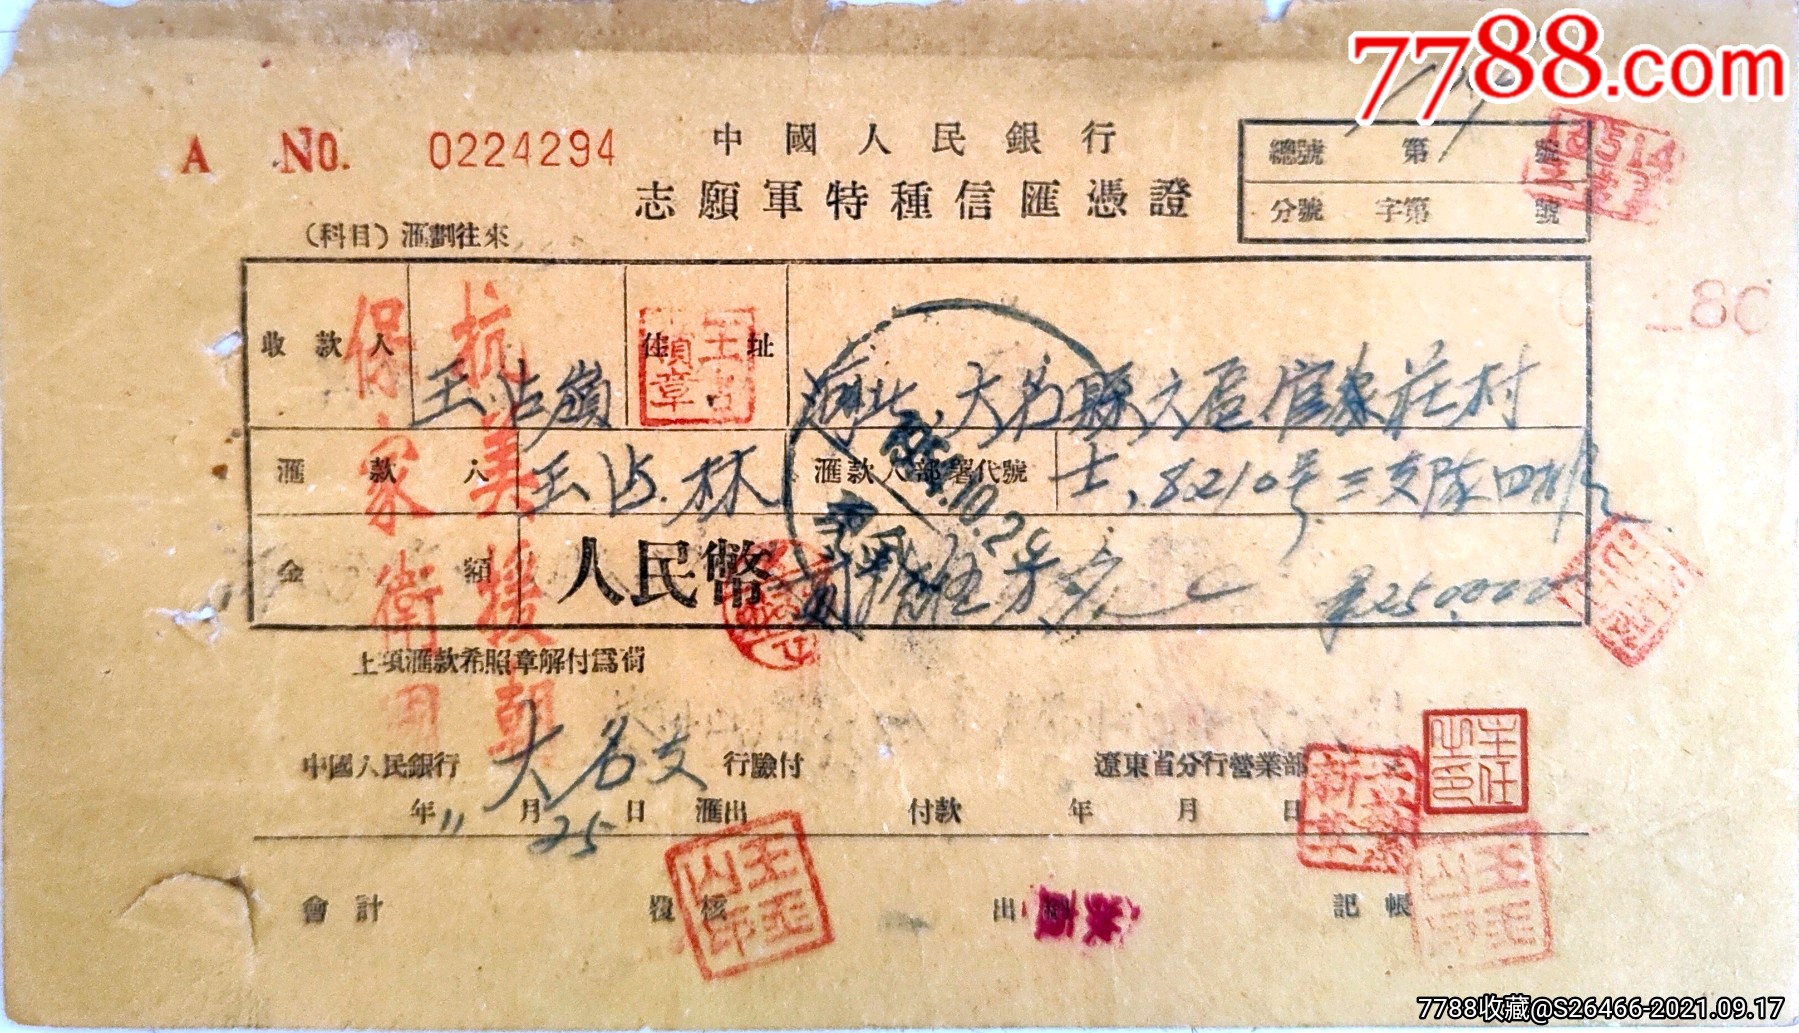 7788.com
A NO. 0224294
中國人民銀行
志願軍特種信匯憑證
總號 第 號
分號 字第 號
(科目)滙劃往來
抗美援朝
保家衛國
收款人 王占嶺 住址 河北,大名縣六區官家莊村
滙款人 王占林 滙款人部署代號 士,8210号三支隊四排
金額 人民幣
上項滙款希照章解付爲荷
中國人民銀行 大名支 行驗付 遼東省分行營業部
年 11 月 25 日 滙出 付款 年 月 日
主任之印
會計 覆核 出納 記帳
7788收藏@S26466-2021.09.17